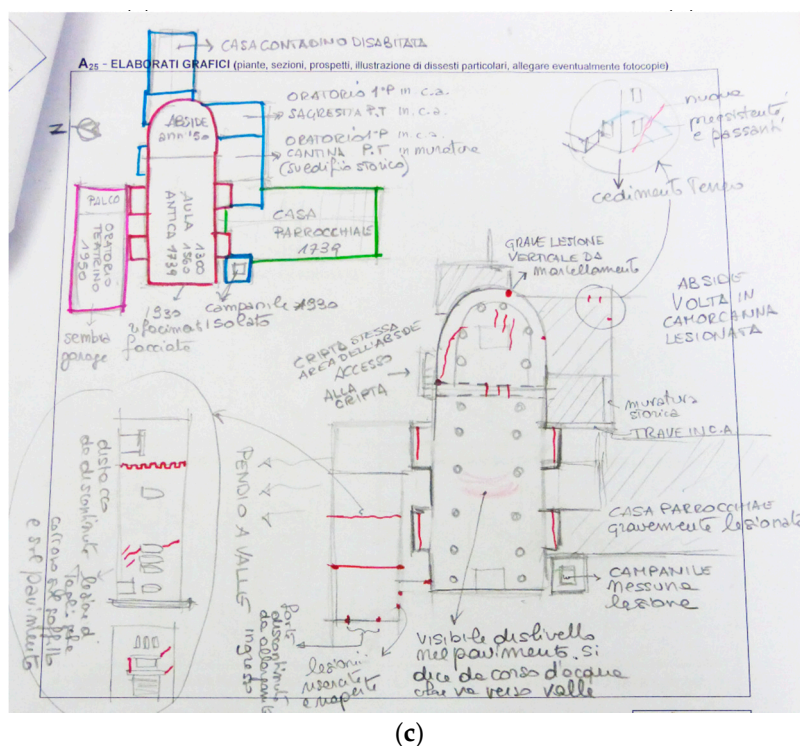 CASA CONTADINO DISABITATA
A25 - ELABORATI GRAFICI (piante, sezioni, prospetti, illustrazione di dissesti particolari, allegare eventualmente fotocopie)
ORATORIO 1°P in c.a.
SAGRESTIA P.T in c.a.
ORATORIO 1°P in c.a.
CANTINA P.T in murature
(su edificio storico)
N
ABSIDE
anni '50
PALCO
ORATORIO
TEATRINO
1950
AULA
ANTICA
1300
1560
1739
CASA
PARROCCHIALE
1739
1930
facciata
campanile 1930
isolato
sembra
garage
nuove
preesistenti
e passanti
cedimento Terreno
GRAVE LESIONE
VERTICALE DA
martellamento
ABSIDE
VOLTA IN
CAMORCANNA
LESIONATA
CRIPTA STESSA
AREA DELL'ABSIDE
ACCESSO
ALLA
CRIPTA
muratura
storica
TRAVE IN C.A
CASA PARROCCHIALE
gravemente lesionata
CAMPANILE
nessuna
lesione
PENDIO A VALLE
distacco
da discontinuità
lesioni
e sul pavimento
forte
discontinuità
ingresso
lesioni
riaperte
VISIBILE dislivello
nel pavimento. Si
dice da corso d'acqua
che va verso valle
(c)